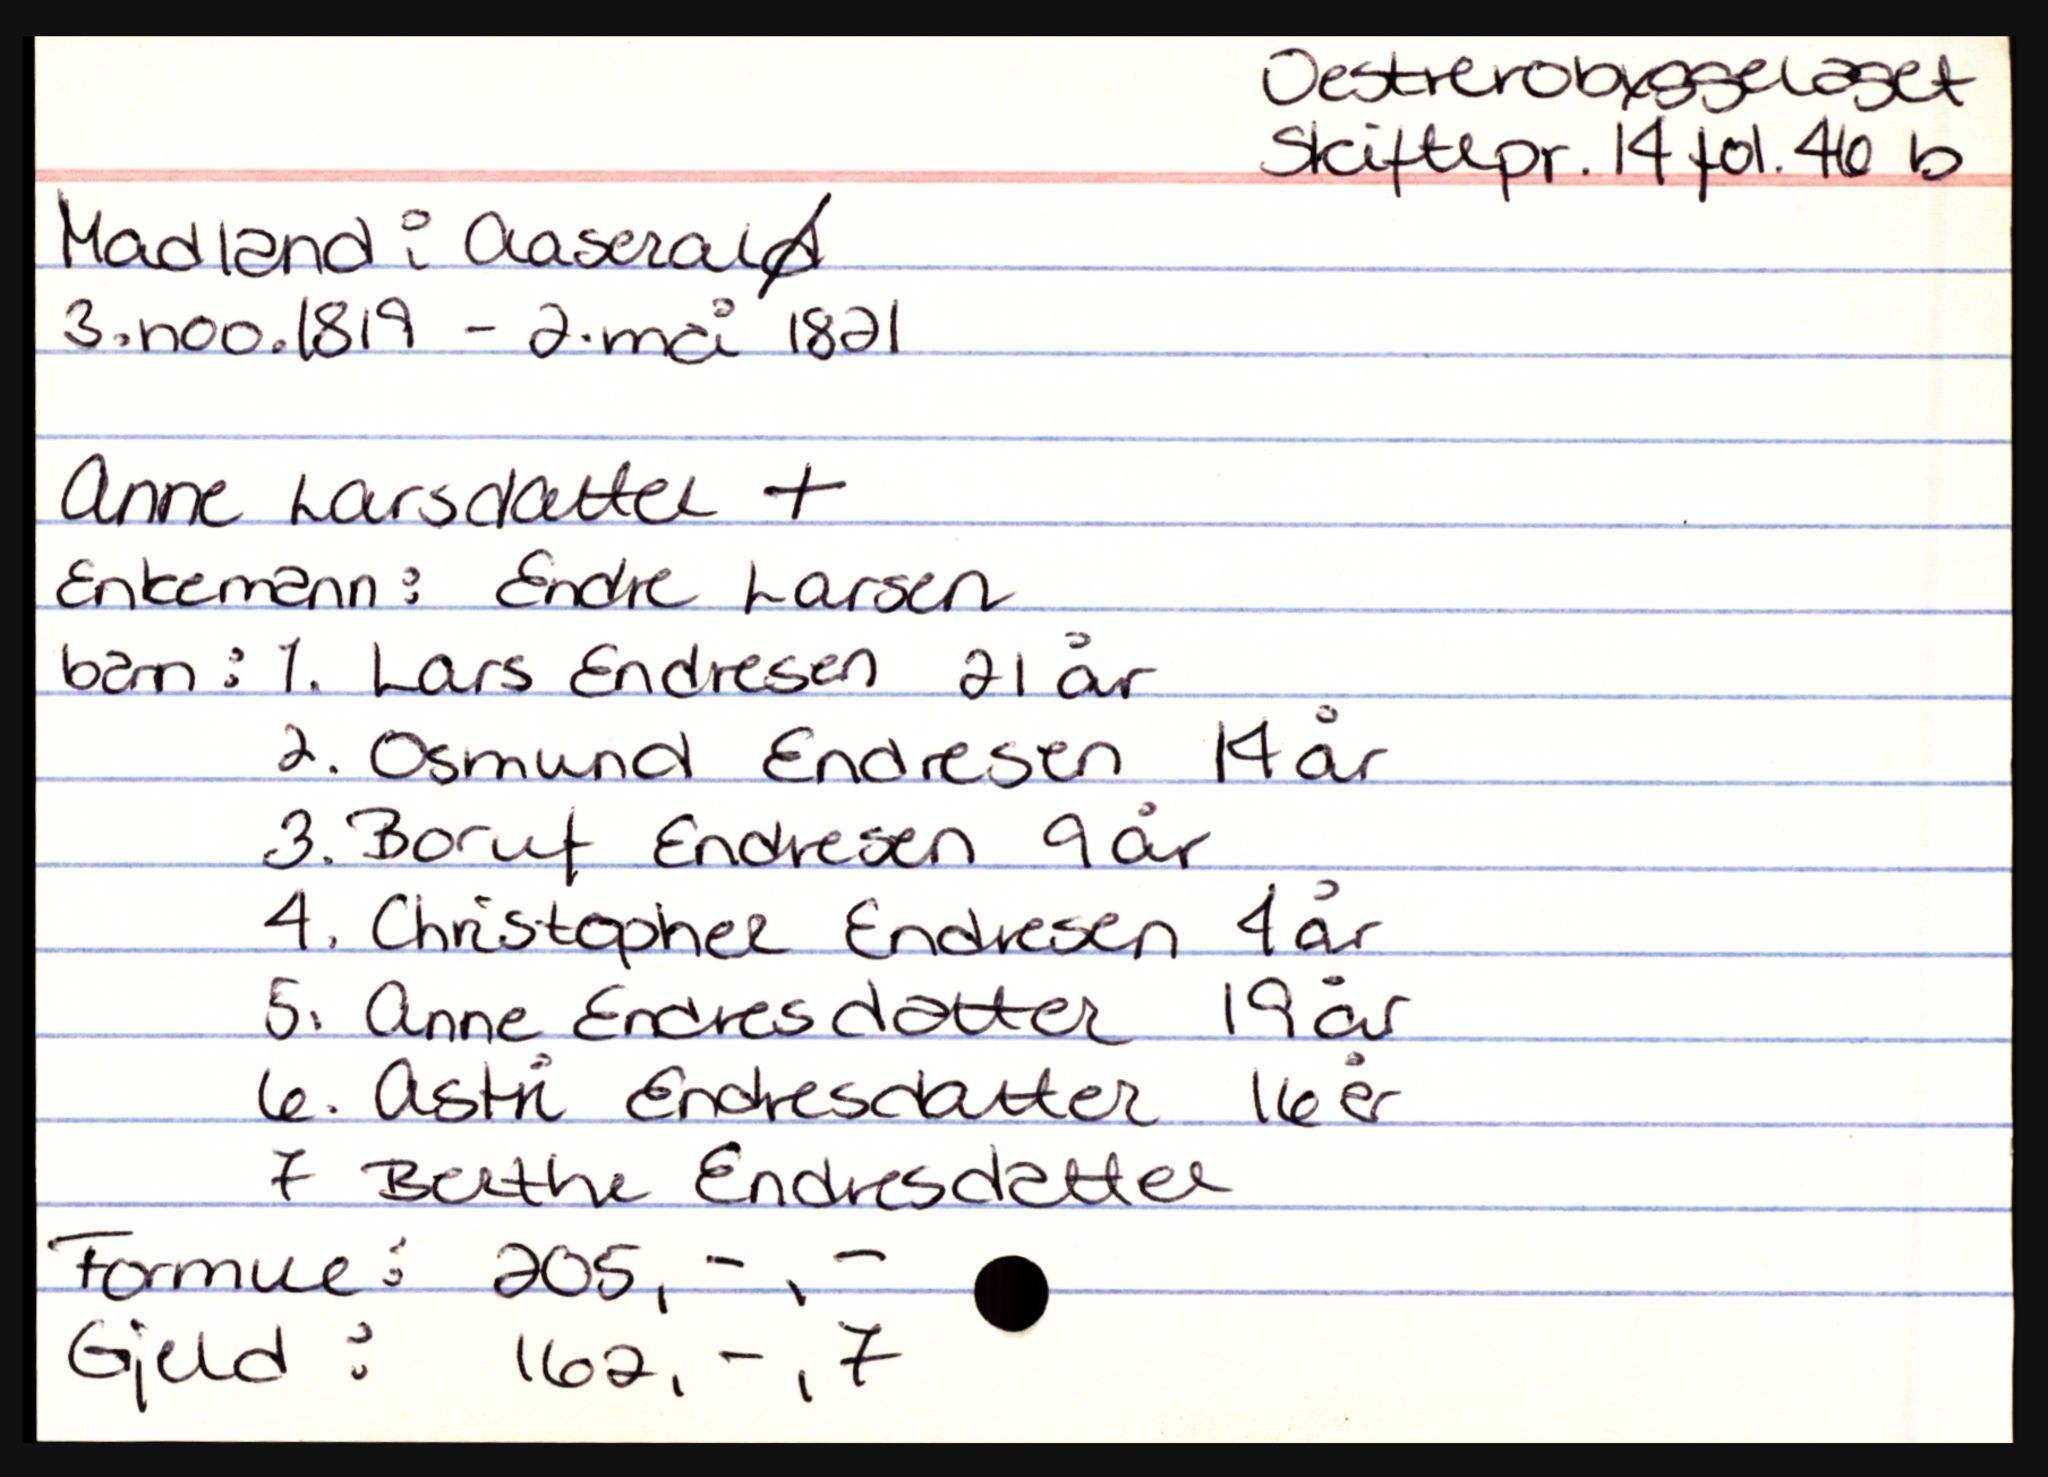 Oestrerobyggelaget
Skiftepr. 14 fol. 46 b
Madland i Aaseral
3. nov. 1819 - 2. mai 1821
Anne Larsdatter +
Enkemann: Endre Larsen
barn: 1. Lars Endresen 21 år
2. Osmund Endresen 14 år
3. Boruf Endresen 9 år
4. Christopher Endresen 4 år
5. Anne Endresdatter 19 år
6. Astri Endresdatter 16 år
7 Berthe Endresdatter
Formue: 205, -, -
Gjeld: 162, -, 7